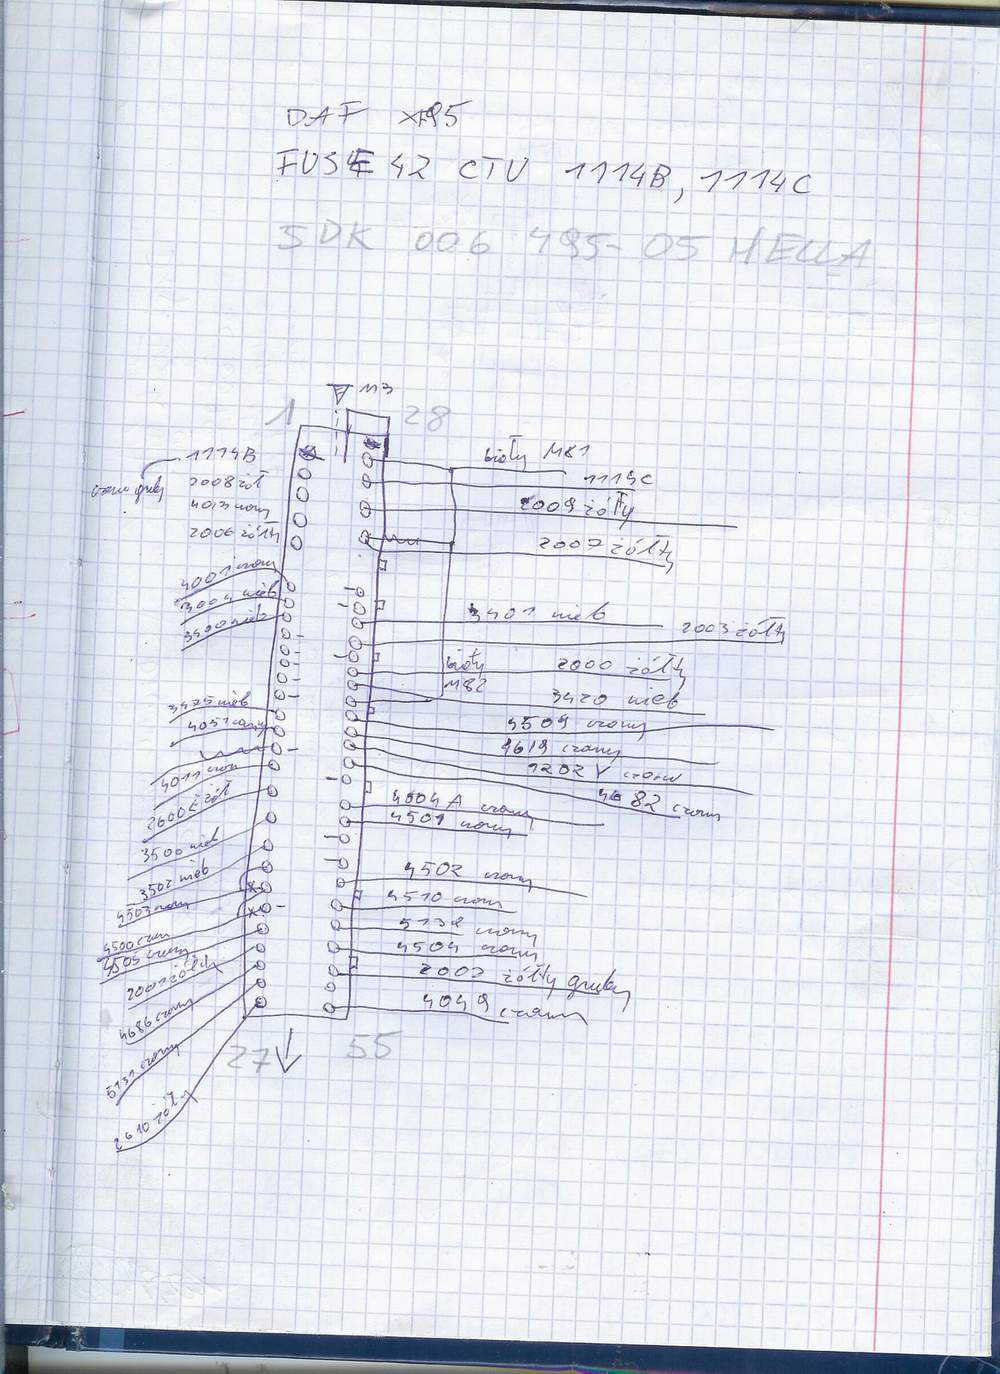 DAF X95
FUSE 42 CTU 1114B, 1114C
5DK 006 495-05 HELLA
M3
1
28
1114B
czarny gruby
2008 żół
4013 czarny
2006 żółty
4001 czarny
3004 nieb
3400 nieb
3425 nieb
4051 czarny
4011 czar
2600 żół
3500 nieb
3502 nieb
4503 czarny
4500 czarn
4505 czarny
2001 żółty
4686 czarny
5131 czarny
2610 żół
27
biały M81
1114C
2009 żółty
2007 żółty
3401 nieb
2003 żółty
biały
M82
2000 żółty
3420 nieb
4509 czarny
4619 czarny
1202 Y czarn
4682 czarny
4004 A czarny
4501 czarny
4502 czarny
4510 czarn
5132 czarny
4504 czarny
2002 żółty gruby
4049 czarny
55